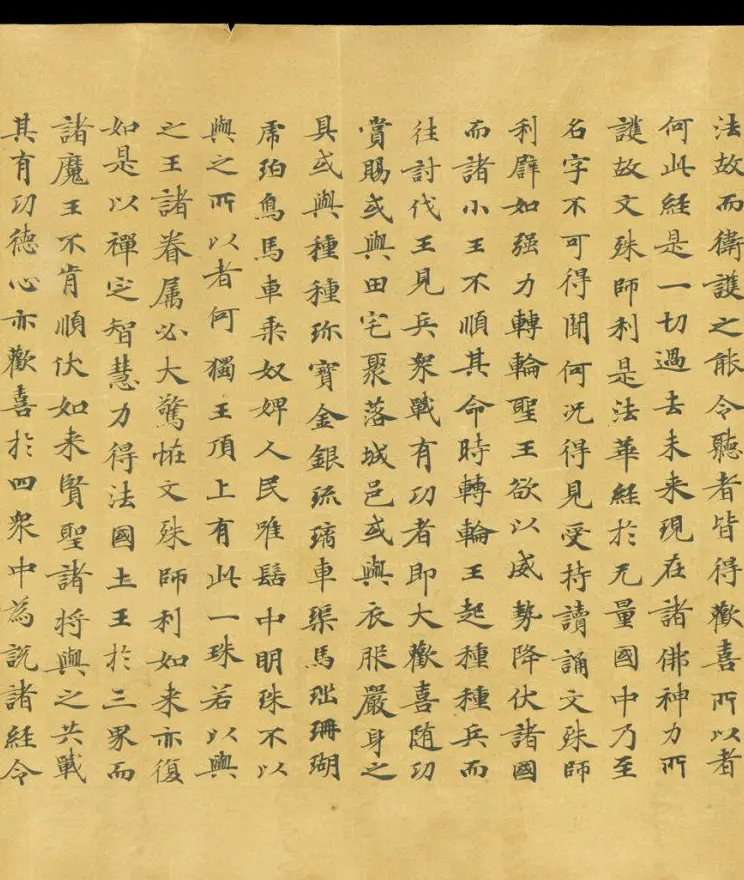 法故而衛護之能令聽者皆得歡喜所以者
何此經是一切過去未來現在諸佛神力所
護故文殊師利是法華經於无量國中乃至
名字不可得聞何況得見受持讀誦文殊師
利辟如强力轉輪聖王欲以威勢降伏諸國
而諸小王不順其命時轉輪王起種種兵而
往討伐王見兵衆戰有功者即大歡喜随功
賞賜或與田宅聚落城邑或與衣服嚴身之
具或與種種珎寶金銀琉璃車渠馬瑙珊瑚
虎珀鳥馬車乘奴婢人民唯髻中明珠不以
與之所以者何獨王頂上有此一珠若以與
之王諸眷属必大驚恠文殊師利如来亦復
如是以禪定智慧力得法國土王於三界而
諸魔王不肯順伏如来賢聖諸将與之共戰
其有功德心亦歡喜於四衆中為説諸經令